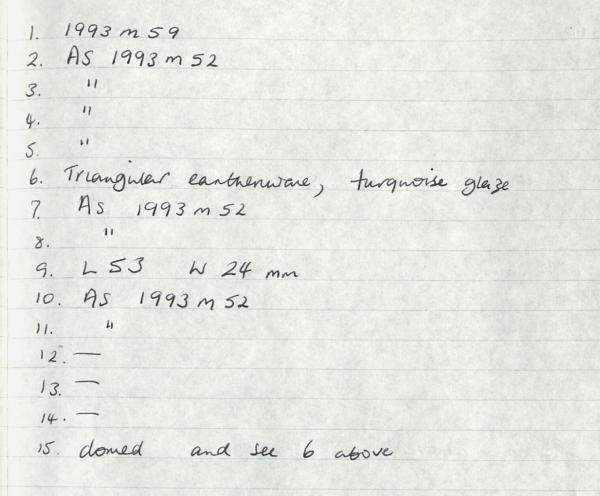 1. 1993 m 59
2. AS 1993 m 52
3. "
4. "
5. "
6. Triangular earthenware, turquoise glaze
7. As 1993 m 52
8. "
9. L 53 W 24 mm
10. As 1993 m 52
11. "
12. —
13. —
14. —
15. domed and see 6 above